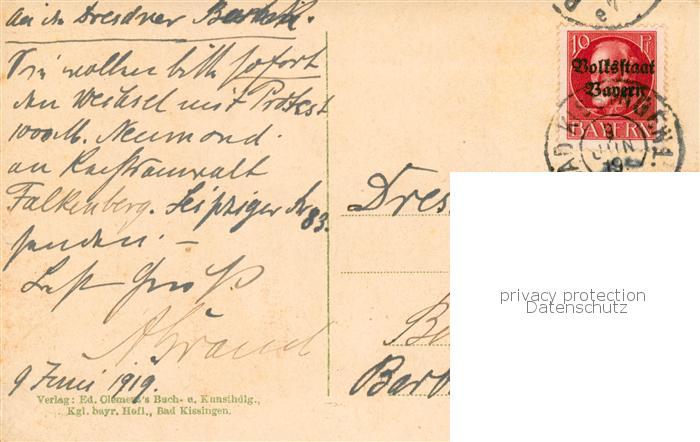 an die Dresdner Bank.
Sie wollen bitte sofort
den Wechsel mit Protest
1000 M. Neumond
an Rechtsanwalt
Falkenberg. Leipziger Str 83.
senden. —
Gruß
9 Juni 1919.
Verlag: Ed. Clement's Buch- u. Kunsthdlg.,
Kgl. bayr. Hofl., Bad Kissingen.
10 Pf
Volksstaat
Bayern
BAYERN
BAD KISSINGEN 1.
9
JUN
19
Dres
Be
Berl
privacy protection
Datenschutz